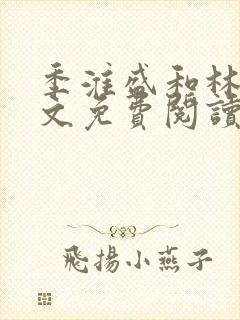 季淮盛和林
文免費閱讀
飛揚小燕子